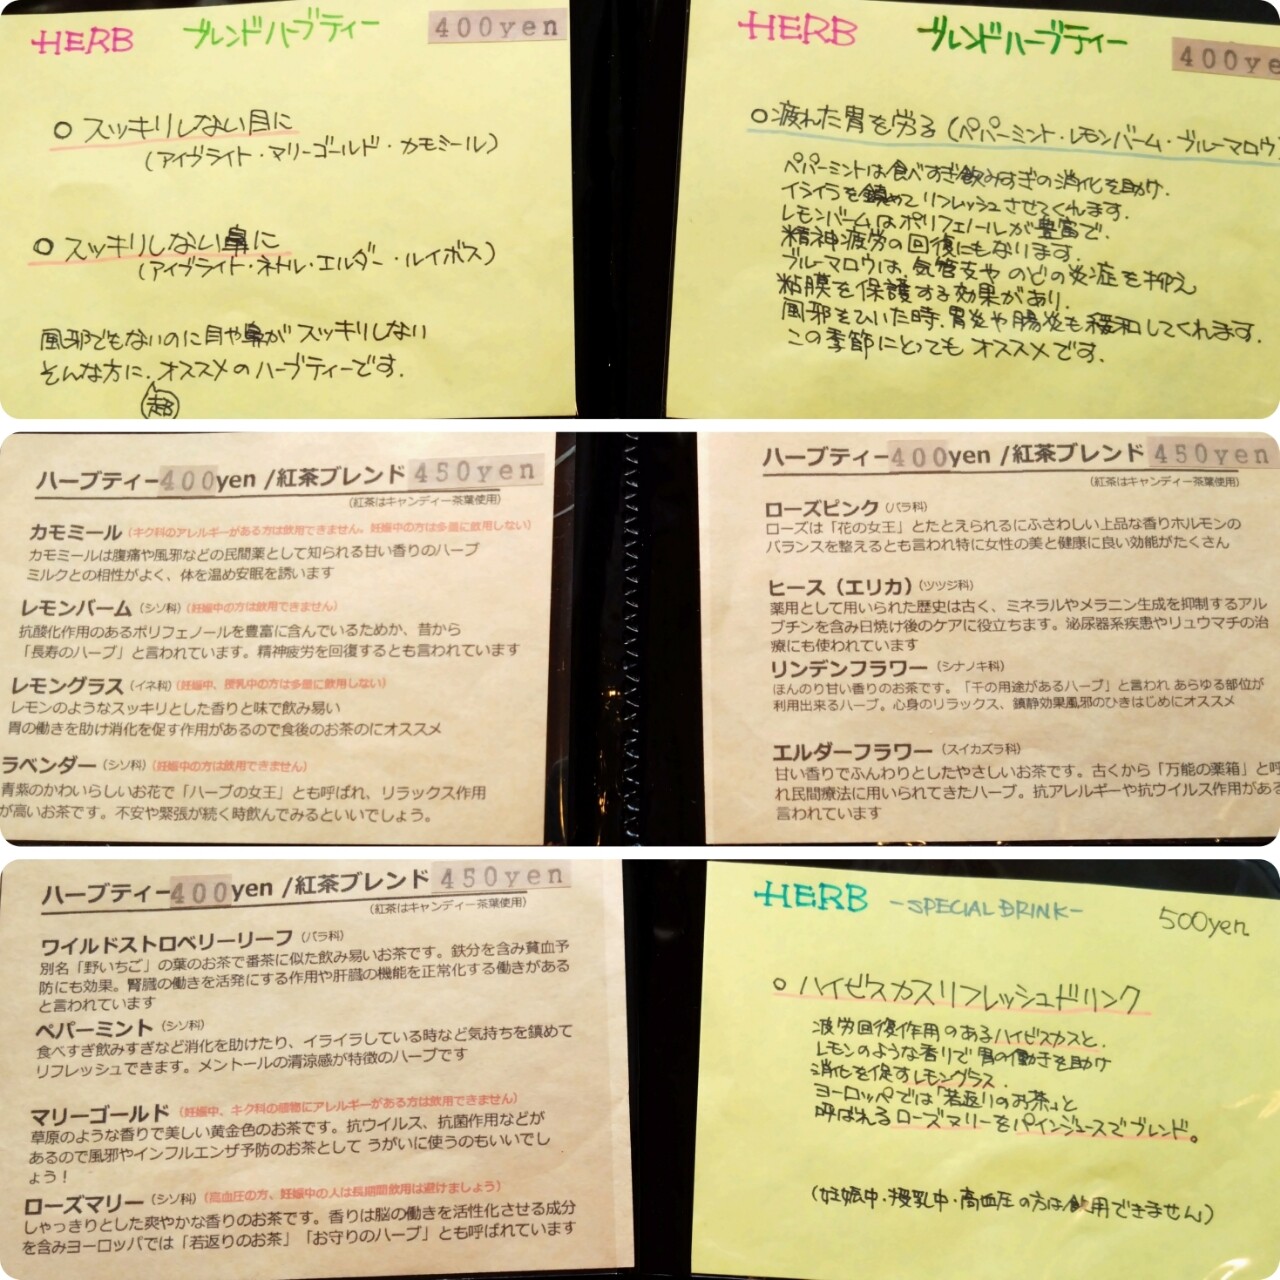 HERB ブレンドハーブティー 400yen
○ スッキリしない目に
(アイブライト・マリーゴールド・カモミール)
○ スッキリしない鼻に
(アイブライト・ネトル・エルダー・ルイボス)
風邪でもないのに目や鼻がスッキリしない
そんな方に、オススメのハーブティーです.
超
HERB ブレンドハーブティー 400ye
○疲れた胃を労る(ペパーミント・レモンバーム・ブルーマロウ)
ペパーミントは食べすぎ飲みすぎの消化を助け.
イライラを鎮めてリフレッシュさせてくれます.
レモンバームはポリフェノールが豊富で.
精神疲労の回復にもなります.
ブルーマロウは、気管支や のどの炎症を抑え
粘膜を保護する効果があり.
風邪をひいた時、胃炎や腸炎も緩和してくれます.
この季節にとっても オススメです.
ハーブティー400yen /紅茶ブレンド 450yen
(紅茶はキャンディー茶葉使用)
カモミール (キク科のアレルギーがある方は飲用できません、妊娠中の方は多量に飲用しない)
カモミールは腹痛や風邪などの民間薬として知られる甘い香りのハーブ
ミルクとの相性がよく、体を温め安眠を誘います
レモンバーム (シソ科) (妊娠中の方は飲用できません)
抗酸化作用のあるポリフェノールを豊富に含んでいるためか、昔から
「長寿のハーブ」と言われています。精神疲労を回復するとも言われています
レモングラス (イネ科) (妊娠中、授乳中の方は多量に飲用しない)
レモンのようなスッキリとした香りと味で飲み易い
胃の働きを助け消化を促す作用があるので食後のお茶のにオススメ
ラベンダー (シソ科) (妊娠中の方は飲用できません)
青紫のかわいらしいお花で「ハーブの女王」とも呼ばれ、リラックス作用
が高いお茶です。不安や緊張が続く時飲んでみるといいでしょう。
ハーブティー400yen /紅茶ブレンド 450yen
(紅茶はキャンディー茶葉使用)
ローズピンク (バラ科)
ローズは「花の女王」とたとえられるにふさわしい上品な香りホルモンの
バランスを整えるとも言われ特に女性の美と健康に良い効能がたくさん
ヒース（エリカ） (ツツジ科)
薬用として用いられた歴史は古く、ミネラルやメラニン生成を抑制するアル
ブチンを含み日焼け後のケアに役立ちます。泌尿器系疾患やリュウマチの治
療にも使われています
リンデンフラワー (シナノキ科)
ほんのり甘い香りのお茶です。「千の用途があるハーブ」と言われ あらゆる部位が
利用出来るハーブ。心身のリラックス、鎮静効果風邪のひきはじめにオススメ
エルダーフラワー (スイカズラ科)
甘い香りでふんわりとしたやさしいお茶です。古くから「万能の薬箱」と呼
れ民間療法に用いられてきたハーブ。抗アレルギーや抗ウイルス作用がある
言われています
ハーブティー400yen /紅茶ブレンド 450yen
(紅茶はキャンディー茶葉使用)
ワイルドストロベリーリーフ (バラ科)
別名「野いちご」の葉のお茶で番茶に似た飲み易いお茶です。鉄分を含み貧血予
防にも効果。腎臓の働きを活発にする作用や肝臓の機能を正常化する働きがある
と言われています
ペパーミント (シソ科)
食べすぎ飲みすぎなど消化を助けたり、イライラしている時など気持ちを鎮めて
リフレッシュできます。メントールの清涼感が特徴のハーブです
マリーゴールド (妊娠中、キク科の植物にアレルギーがある方は飲用できません)
草原のような香りで美しい黄金色のお茶です。抗ウイルス、抗菌作用などが
あるので風邪やインフルエンザ予防のお茶として うがいに使うのもいいでし
ょう！
ローズマリー (シソ科) (高血圧の方、妊娠中の人は長期間飲用は避けましょう)
しゃっきりとした爽やかな香りのお茶です。香りは脳の働きを活性化させる成分
を含みヨーロッパでは「若返りのお茶」「お守りのハーブ」とも呼ばれています
HERB -SPECIAL DRINK- 500yen
○ ハイビスカスリフレッシュドリンク
疲労回復作用のあるハイビスカスと.
レモンのような香りで胃の働きを助け
消化を促すレモングラス.
ヨーロッパでは「若返りのお茶」と
呼ばれるローズマリーをパインジュースでブレンド。
(妊娠中・授乳中・高血圧の方は飲用できません)